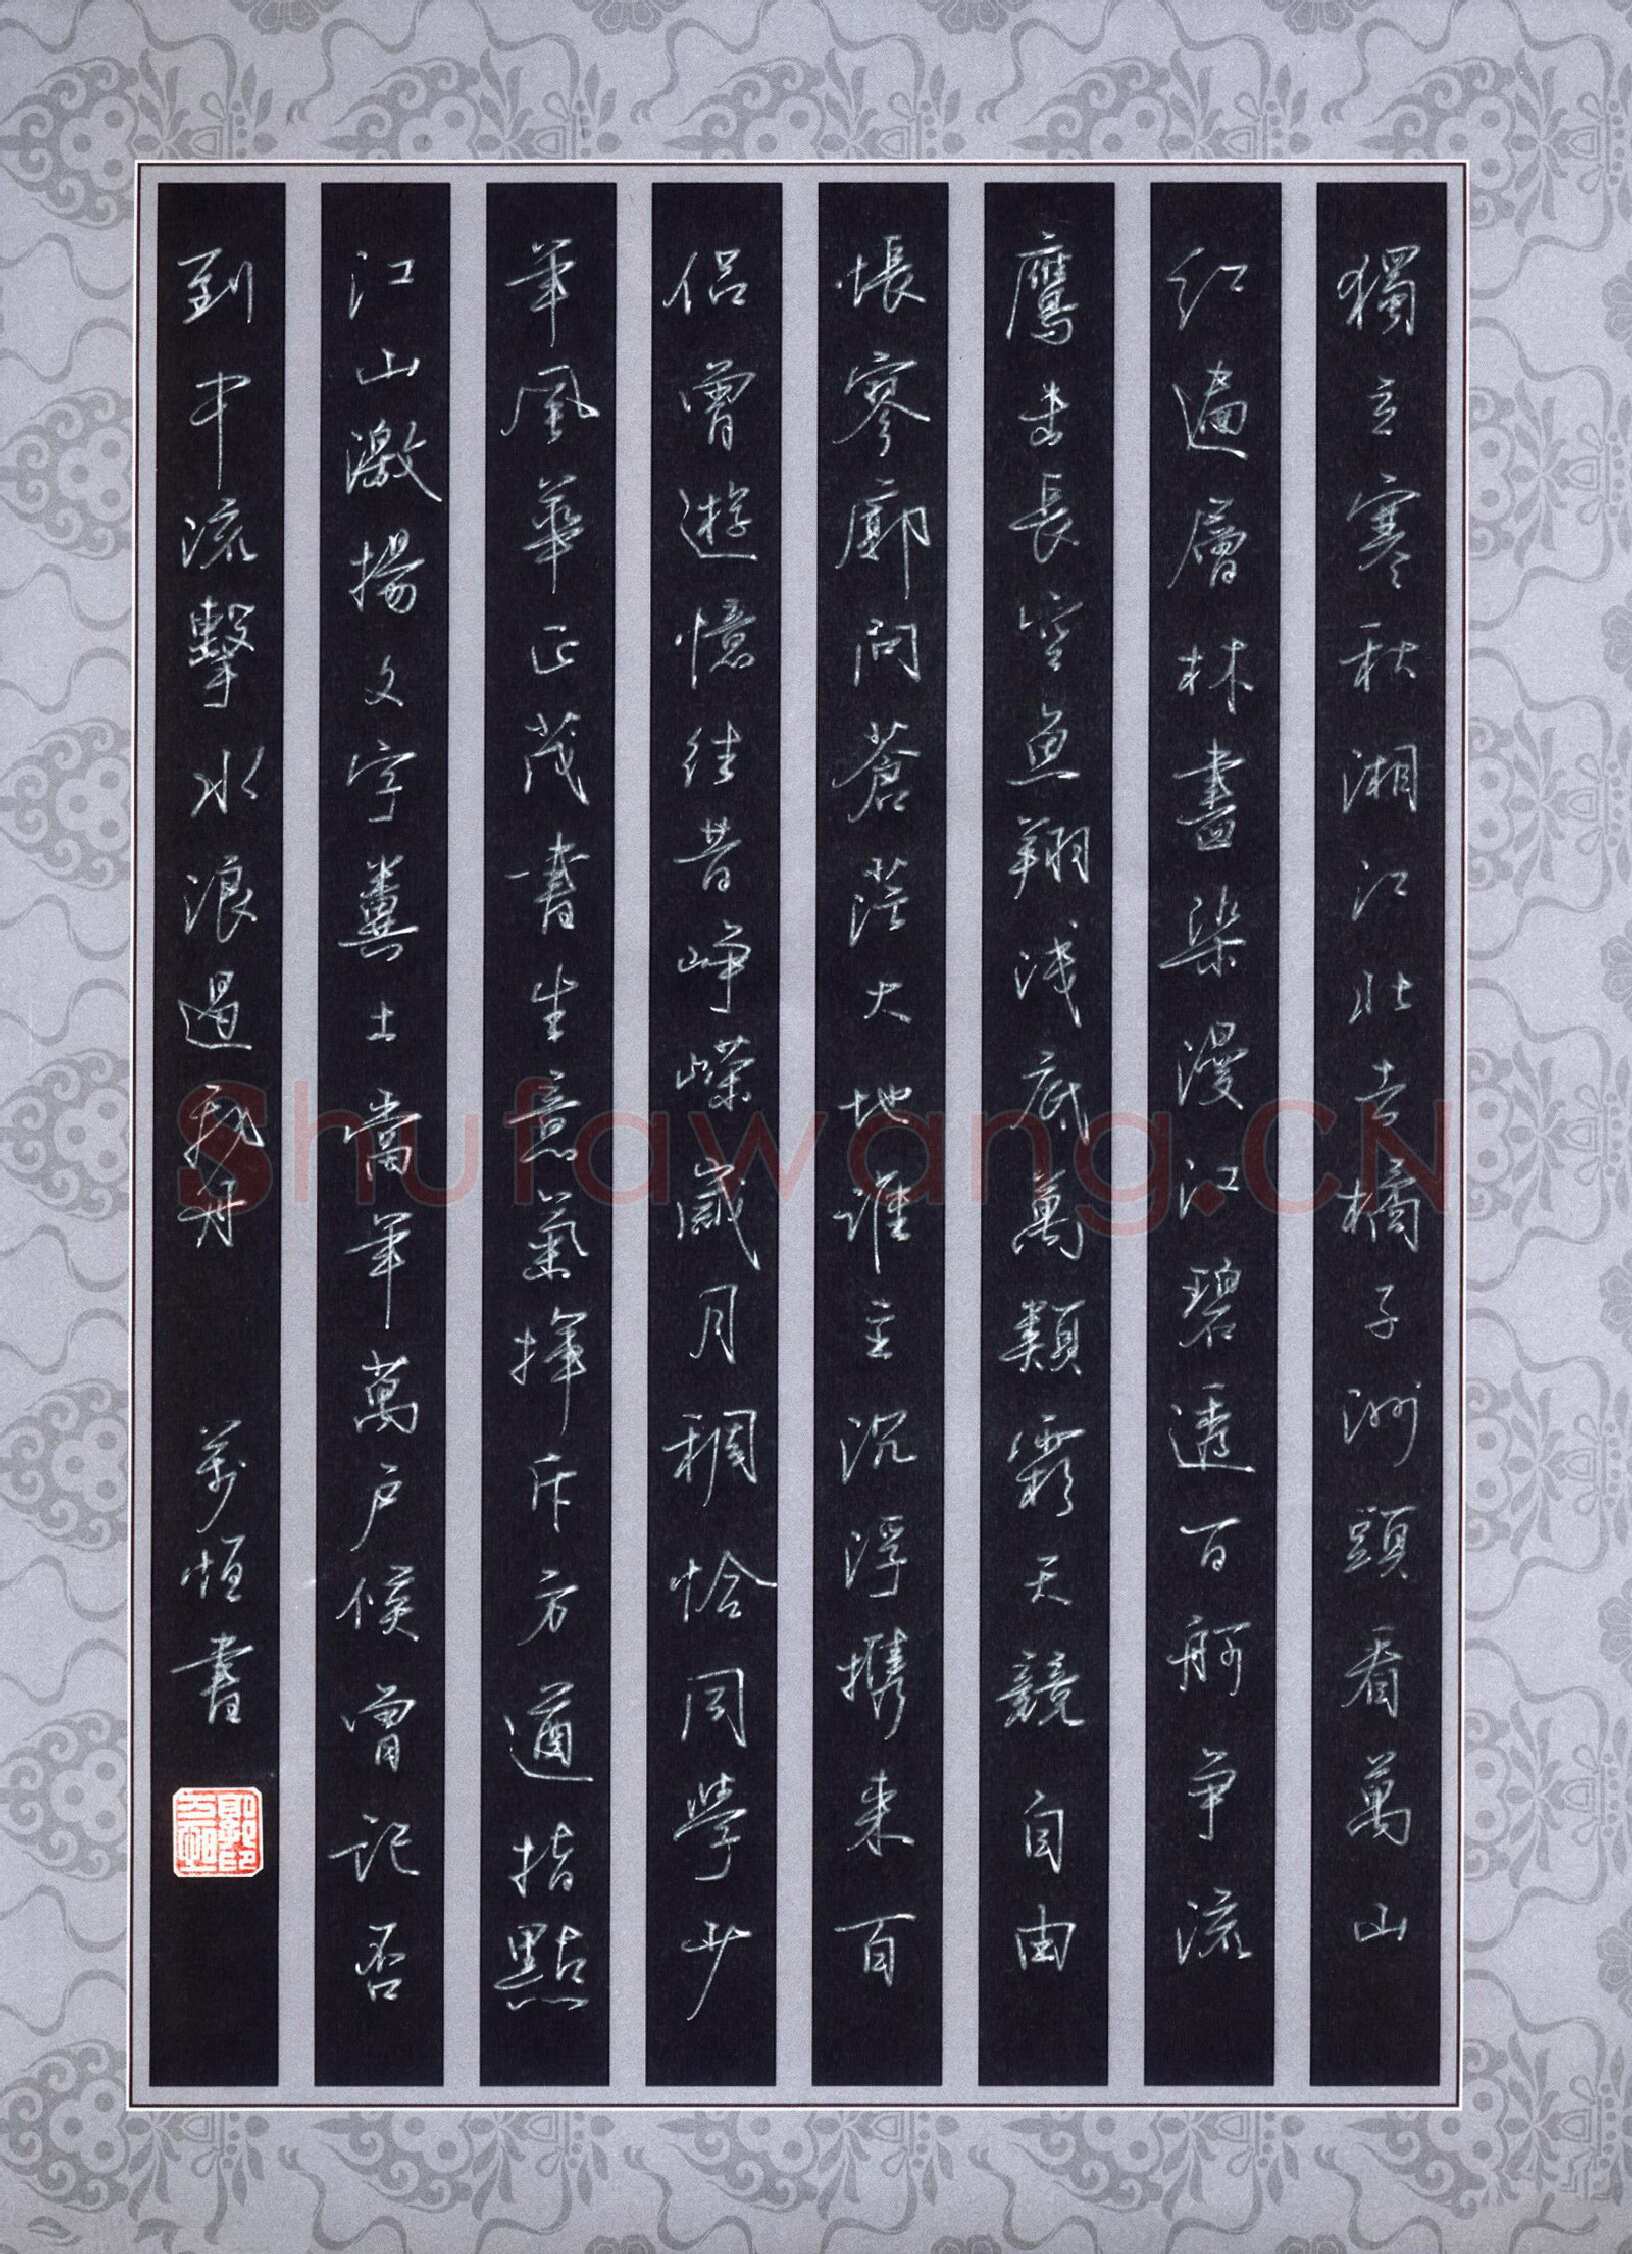 獨立寒秋湘江北去橘子洲頭看萬山
紅遍層林盡染漫江碧透百舸争流
鷹击長空魚翔淺底萬類霜天競自由
悵寥廓問蒼茫大地誰主沉浮攜來百
侣曾遊憶往昔崢嶸歲月稠恰同學少
年風華正茂書生意氣揮斥方遒指點
江山激揚文字糞土當年萬户侯曾記否
到中流擊水浪遏飛舟 恒書
Shufawang.CN